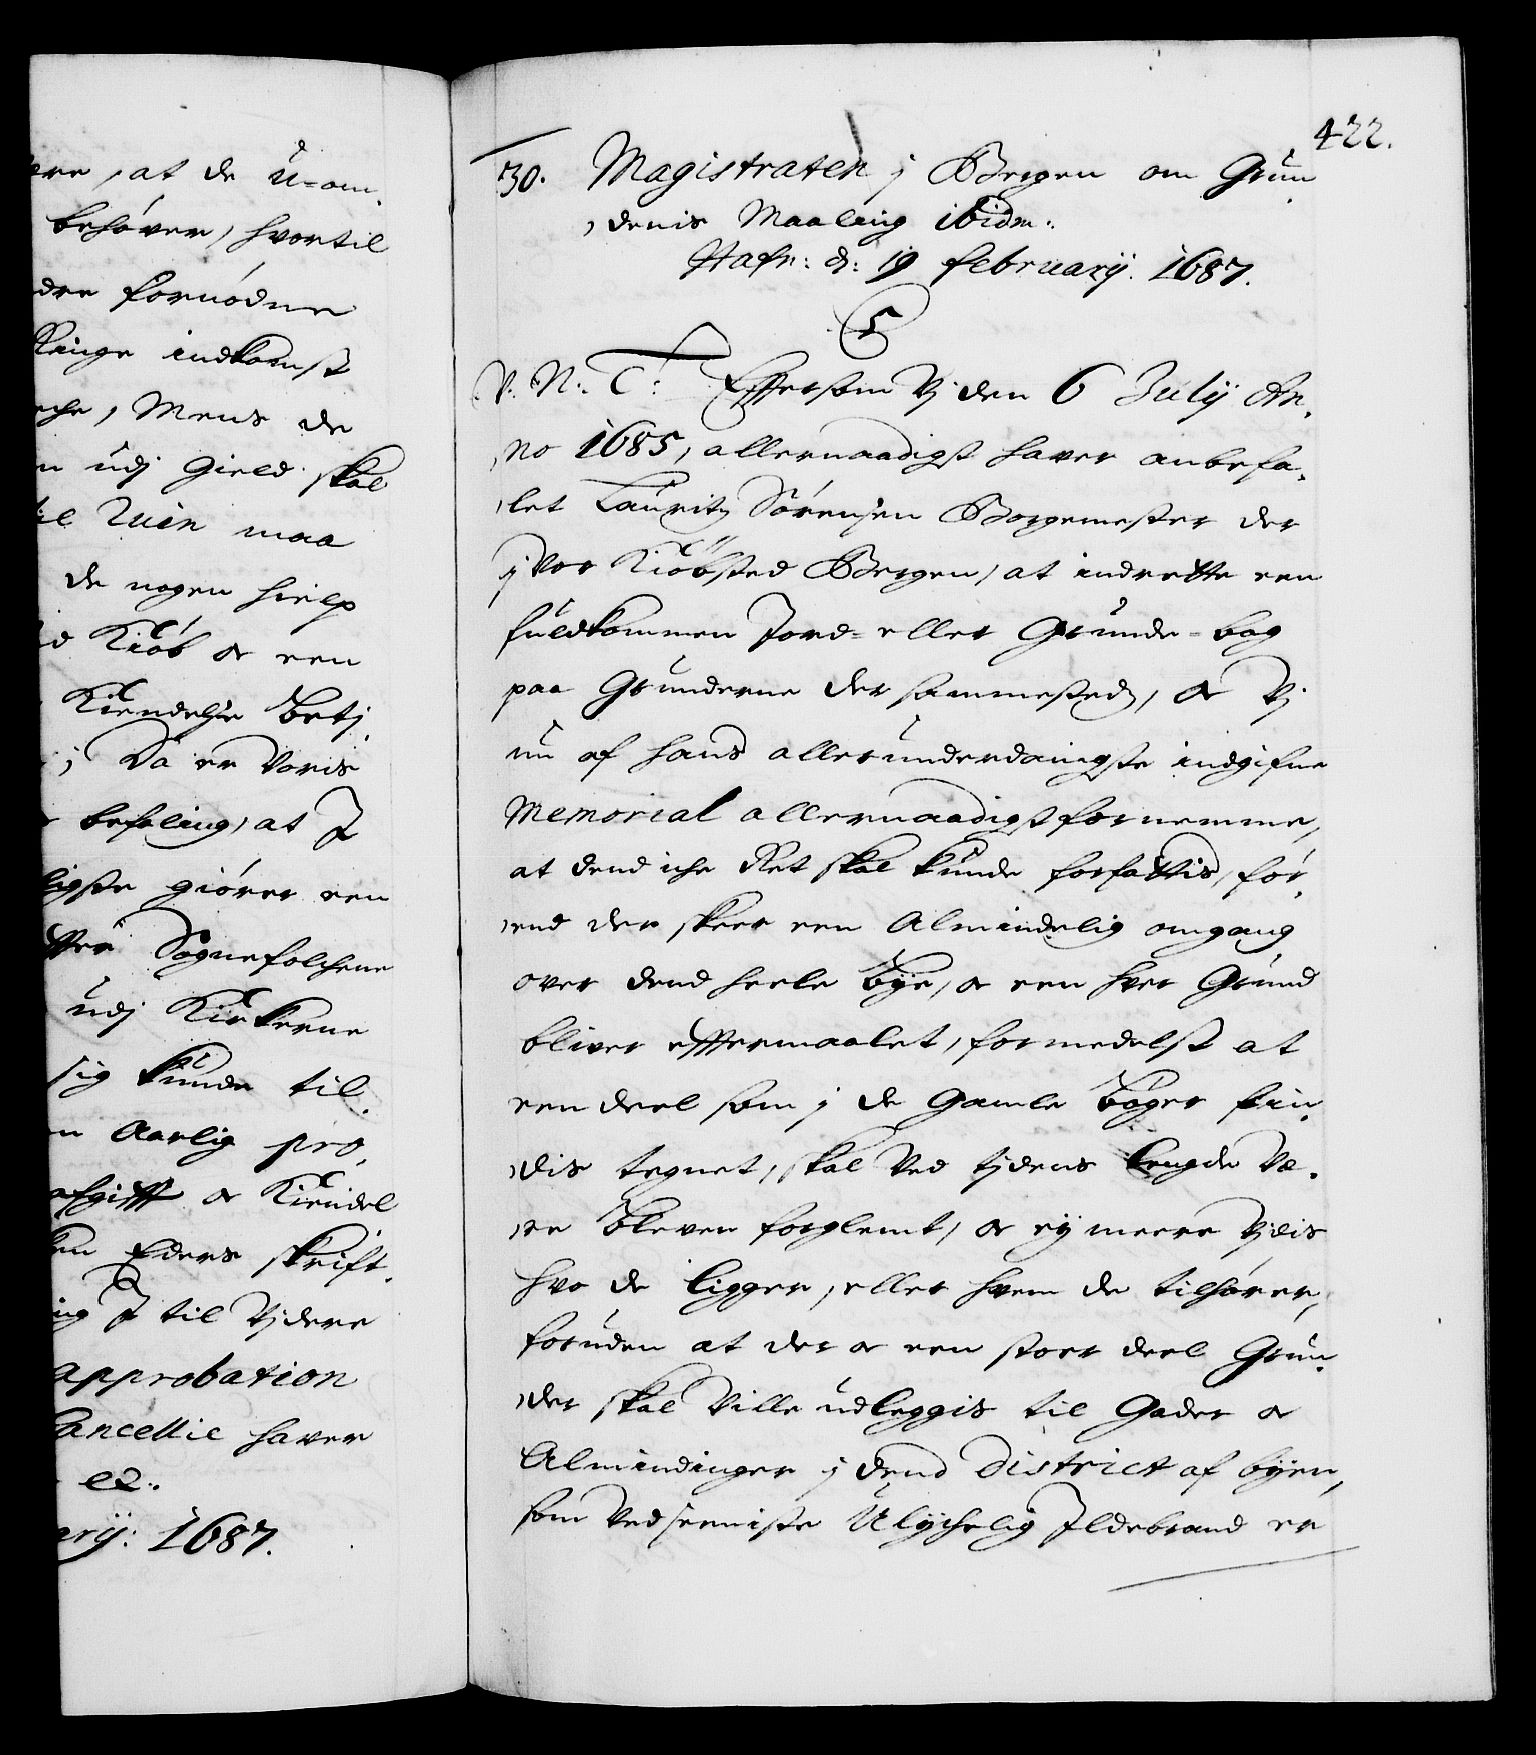 ere, at de u-om-
behøver, hvortil
dre fornødne
Ringe indkomst
eche, Mens de
n udj Gield skal
til Ruin maa
de nogen hielp
d Kiøb oc een
Kiendelse Betj-
; Da er Voris
befaling, at I
ligste giører een
ffter Sognefolchene
udj Kirkerne
sig kunde til-
n Aarlig pro-
afgifft oc Kiendel
en Eders skrift-
ing I til Vjdere
approbation
Cancellie haver
ec.
arij: 1687.
422.
30. Magistraten j Bergen om Grun-
denis Maaling ibidm:
Hafn: d: 19 februarij. 1687.
5
V. N. T: Effersom Vj den 6 Julij An-
no 1685, allernaadigst haver anbefa-
let Lauritz Sørensen Borgemester der
j Vor Kiøbsted Bergen, at indrette een
fuldkommen Jord- eller Grunde-bog
paa Grunderne der sammested, oc Vj
nu af hans allerunderdanigste indgifne
Memorial allernaadigst fornemme,
at dend iche Ret skal kunde forfattis, før-
end der skeer een Almindelig omgang
over dend heele Bye, oc een hver Grund
bliver effermaalet, formedelst at
een deel som j de Gamle Bøger fin-
dis tegnet, skal Ved tjdens lengde Væ-
re bleven forglemt, oc ej meere Vjdis
hvo de ligger, eller hvem de tilhører,
foruden at der oc een stoer deel Grun-
der skal Ville udleggis til Gader oc
Almindinger j dend District af byen,
som Ved seeniste Ulychelig Ildebrand er